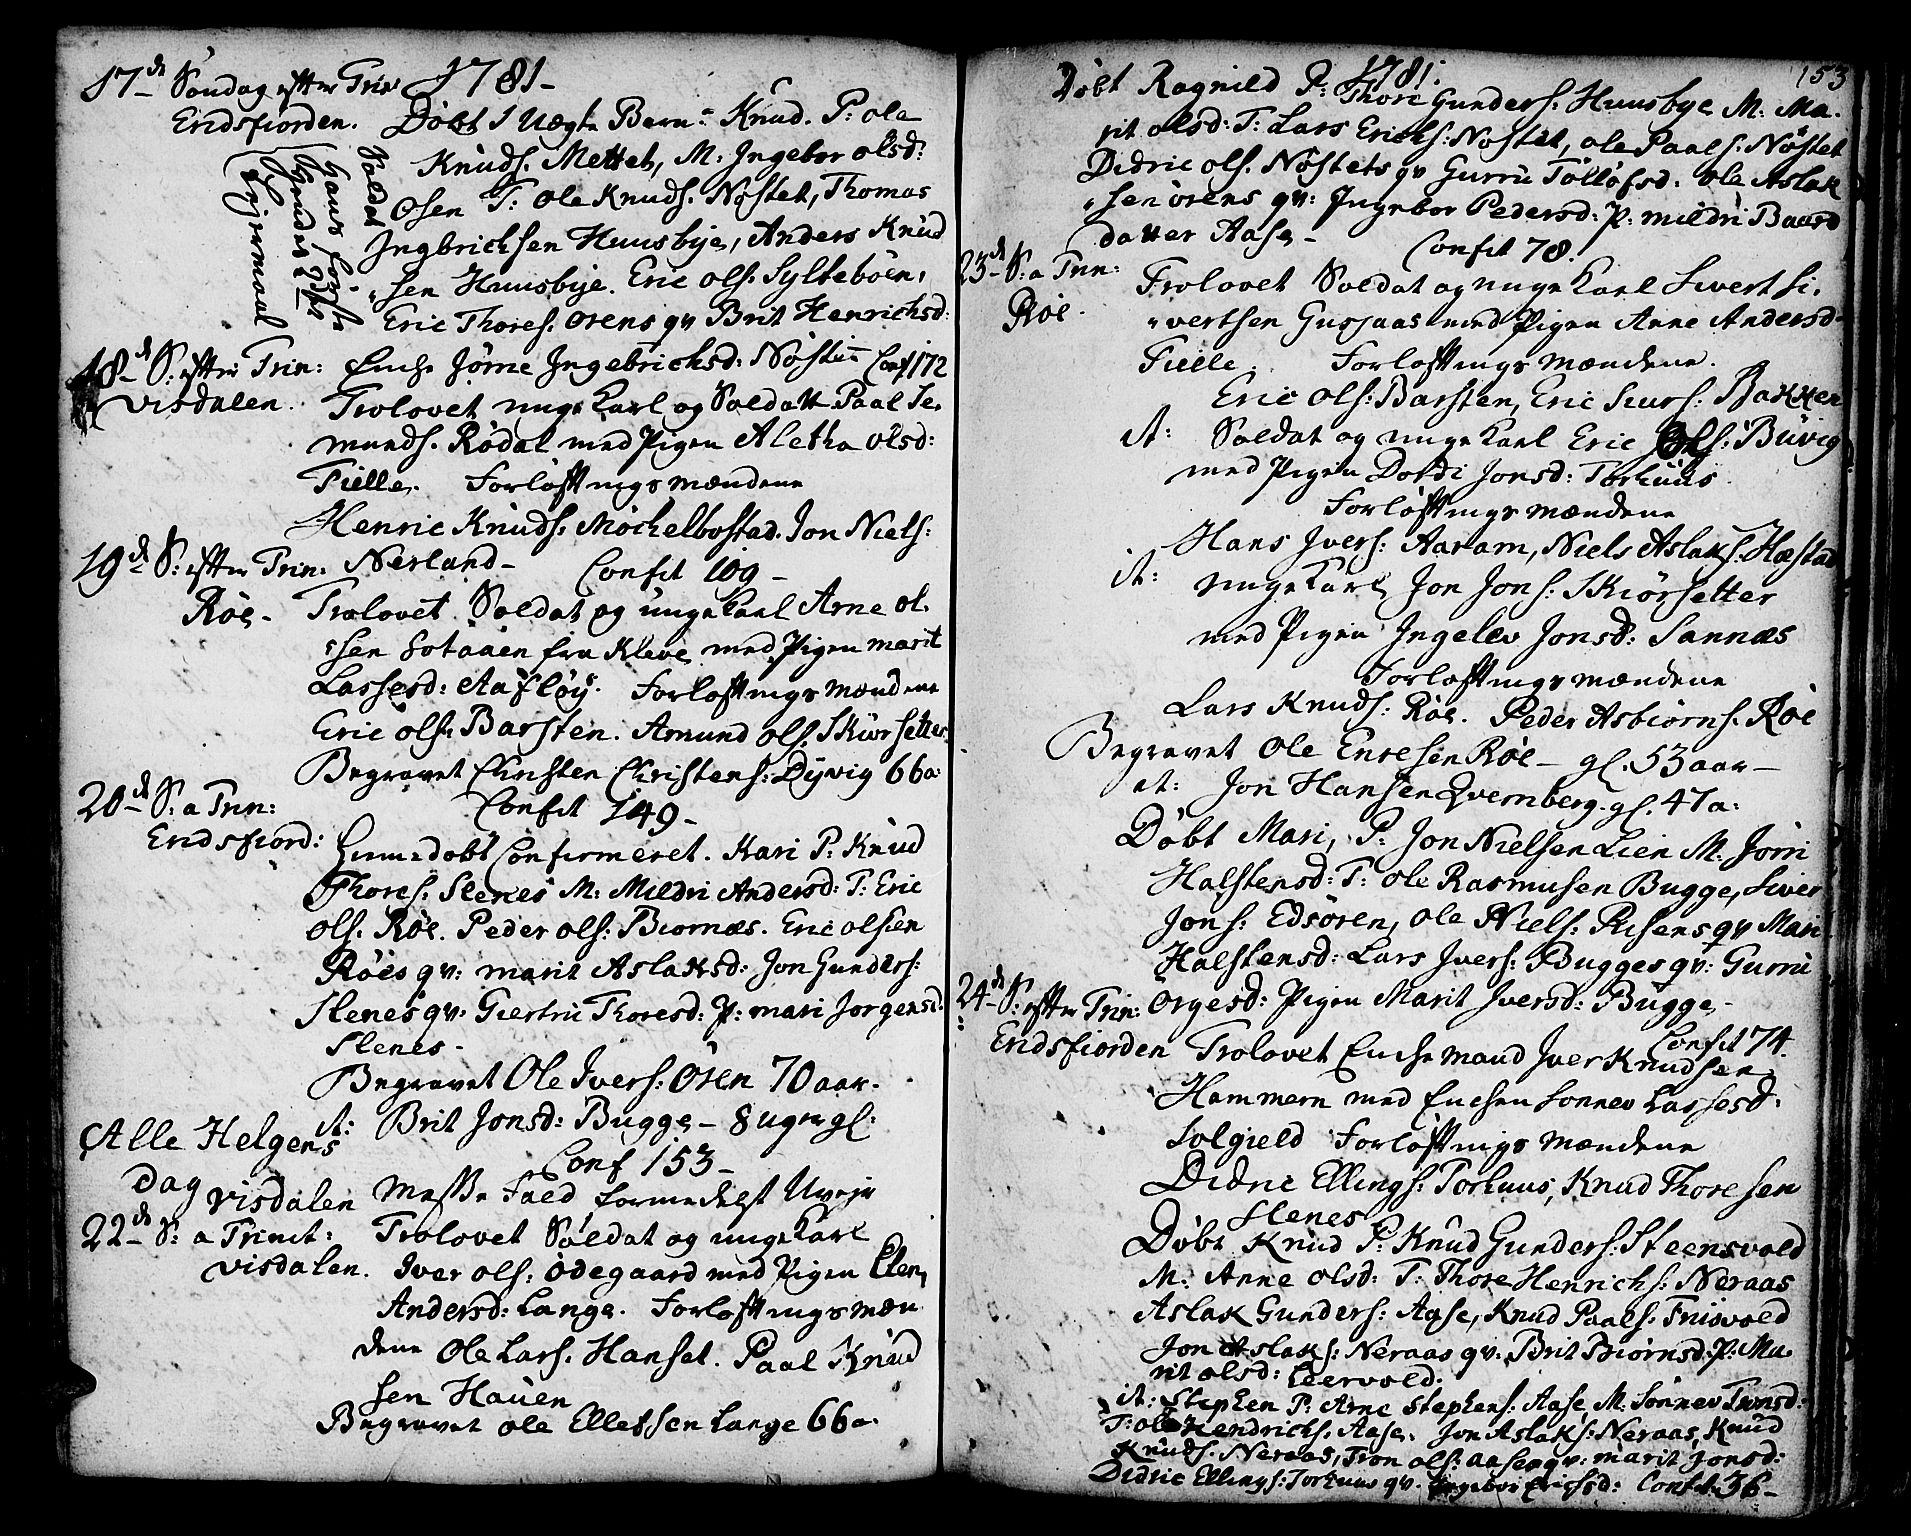 17de Søndag efter Trin 1781-
Eridsfiorden. Døbt 1 Uægte Barn: Knud. P: ole
Knuds. Mettet, M: Ingebor olsd:
Osen T: ole Knuds. Nøstet, Thomas
Ingbrichsen Huusbye, Anders Knud
sen Huusbye. Eric ols. Syltebøen,
Eric Thores. Orens qv Brit Henrichsd:
Soldat
hans første
Qvindes
Leyermaal
18de S: efter Trin: Enche Jørne Ingebrichsd: Nøste Conf 172
Visdalen. Trolovet unge Karl og Soldatt Paal Se.
munds. Rødal med Pigen Aletha olsd:
Fielle. Forløftningsmændene
Henric Knuds. Mochelbostad. Jon Niels:
19de S: efter Trin: Nerland- Confit 109-
Røe- Trolovet Soldat og unge Karl Arne ol.
sen Sotaaen fra Kleve med Pigen marit
Lassesd: Aafløy. Forløftningsmændene
Eric ols. Barsten. Amund ols. Skiørsetter
Begravet Christen Christens: Dyvig 66 a:
20de S: a Trin: Confit 149-
Eridsfiord: Hiemedøbt Confirmeret. Kari P: Knud
Thores. Stenes M: Mildri Andersd: T: Eric
ols. Røe. Peder ols: Biornæs. Eric olsen
Røes qv: marit Aslaksd: Jon Gunders:
Stenes qv: Giertru Thoresd: P: mari Jorgensd.
Stenes-
Begravet Ole Ivers: Osen 70 aar.
it: Brit Jonsd: Bugge- 8 uger gl:
Alle Helgens Conf 153-
Dag Visdalen Messe Fald formedelst Uvejr
22de S: a Trinit: Trolovet Soldat og unge Karl
Visdalen. Iver ols: Ødegaard med Pigen Elen
Andersd: Lange. Forløftningsmæn
dene Ole Lars. Hanset. Paal Knud
sen Hauen
Begravet ole Ellefsen Lange 66 a.
153
1781:
Døbt Ragnild P: Thore Gunders. Huusbye M: Ma.
rit olsd: T: Lars Erichs: Nøstet, ole Paals. Nøstet
Didric ols. Nøstets qv Gurru Tolløfsd: ole Aslak
sen orens qv: Ingebor Pedersd: P: mildri Baard
datter Aase- Confit 78.
23de S: a Trin: Trolovet Soldat og unge Karl Sivert Si.
Røe. vertsen Gusjaas med Pigen Anne Andersd-
Fielle. Forløftningsmændene.
Eric ols: Barsten, Eric Siurs: Bakken
it: Soldat og unge Karl Eric Ols: Buvig
med Pigen Dordi Jonsd: Torhuus.
Forløftningsmændene
Hans Ivers: Aaram, Niels Aslaks. Hæstad
it: unge Karl Jon Jons: Skiørsetter
med Pigen Ingelev Jonsd: Sannæs
Forløftningsmændene
Lars Knuds: Røe. Peder Asbiørns. Røe
Begravet Ole Enresen Røe- gl. 53 aar-
it: Jon Hansen Qvernberg. gl. 47 a:
Døbt Mari, P: Jon Nielsen Lien M: Jorri
Halstensd: T: ole Rasmusen Bugge, Siver
Jons: Edsøren, ole Niels: Risens qv Mari
Halstensd: Lars Ivers: Bugges qv: Gurru
24de S: efter Trin: Orgesd: Pigen Marit Iversd: Bugge-
Confit 74.
Eridsfiorden Trolovet Enchemand Iver Knudsen
Hammern med Enchen Sonnev Lassesd.
Solgield Forløftningsmændene
Didric Ellings: Torhuus, Knud Thoresen
Stenes
Døbt Knud P: Knud Gunders: Steensvold
M: Anne olsd: T: Thore Henrichs: Neraas
Aslak Gunders: Aase, Knud Paals. Frisvold
Jon Aslaks: Neraas qv: Brit Biornsd: P: Ma.
rit olsd: Ledervold.
it: Stephen P: Arne Stephens. Aase M: Sonnev Tronsd:
T: ole Hendrichs. Aase. Jon Aslaks: Neraas, Knud
Knuds. Neraas, Tron ols: aasens qv: marit Jonsd:
Didric Ellings: Torhuus qv. Ingebor Erichsd: Confit: 36-